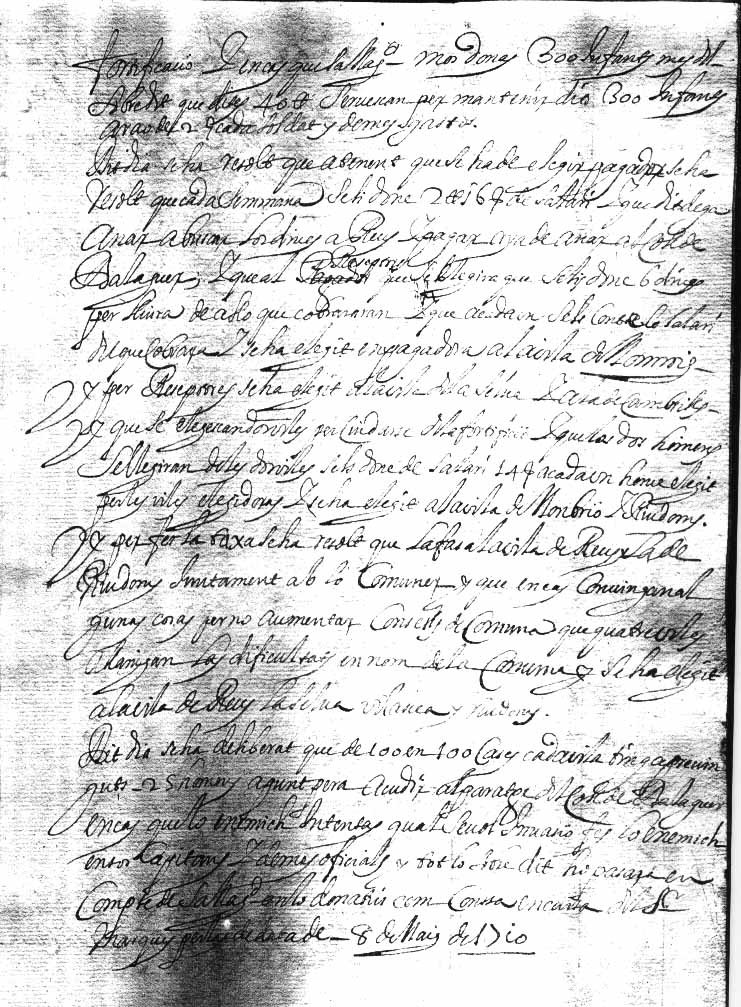 fortificació Y encas que sa Magd. mos donas 300 Infants mes del
sobredit que dites 40 ll servescan per mantenir dio 300 Infans
arao de 2 # cada soldat y demes gastos.
Dit dia se ha resolt que atenent que se ha de elegir pagador se ha
resolt que cada semmana seli done 2 ll 16 # de salari Y que dit dega
anar a buscar los diners a Reus Y pagar aja de anar al Coll de
Balaguer; Y que al Receptor que se elegira que seli done 6 diners
per lliura de aso que cobraran Y que acadaun seli Conte lo salari
del que Cobrara Y se ha elegit en pagadora a la vila de Monroig
y per Receptores se ha elegit a la vila de la Selva Y la de Cambrils
y que se elegescan dos viles per Cuidarse de la fortificació Y que los dos homens
se llegiran de les dos viles sels done de salari 14 # acadaun home elegit
per les viles elegidoras Y se ha elegit a la vila de Monbrio Y Riudoms.
y per fer la taxa se ha resolt que la fasa la vila de Reus y la de
Riudoms Juntament ab lo Comuner y que en cas Convinguan al
gunas cosas per no aumentar Consells de Comuna que quatre viles
allanigan las dificultats en nom de la Comuna y se ha elegit
a la vila de Reus la Selva vilaseca y riudoms.
Dit dia se ha deliberat que de 100 en 100 Cases cada vila tinga previn
guts 25 homens a punt pera acudir al paratge del Coll de Balaguer
en cas que lo enemich Intentas qualsevol Invasio fes lo enemich
entos Capitans Y demes oficials y tot lo sobre dit ho pasara en
Compte de sa Magd. en lo donatiu com Consta en carta del Sr.
Marques per las de data de 8 de Maig de 1710